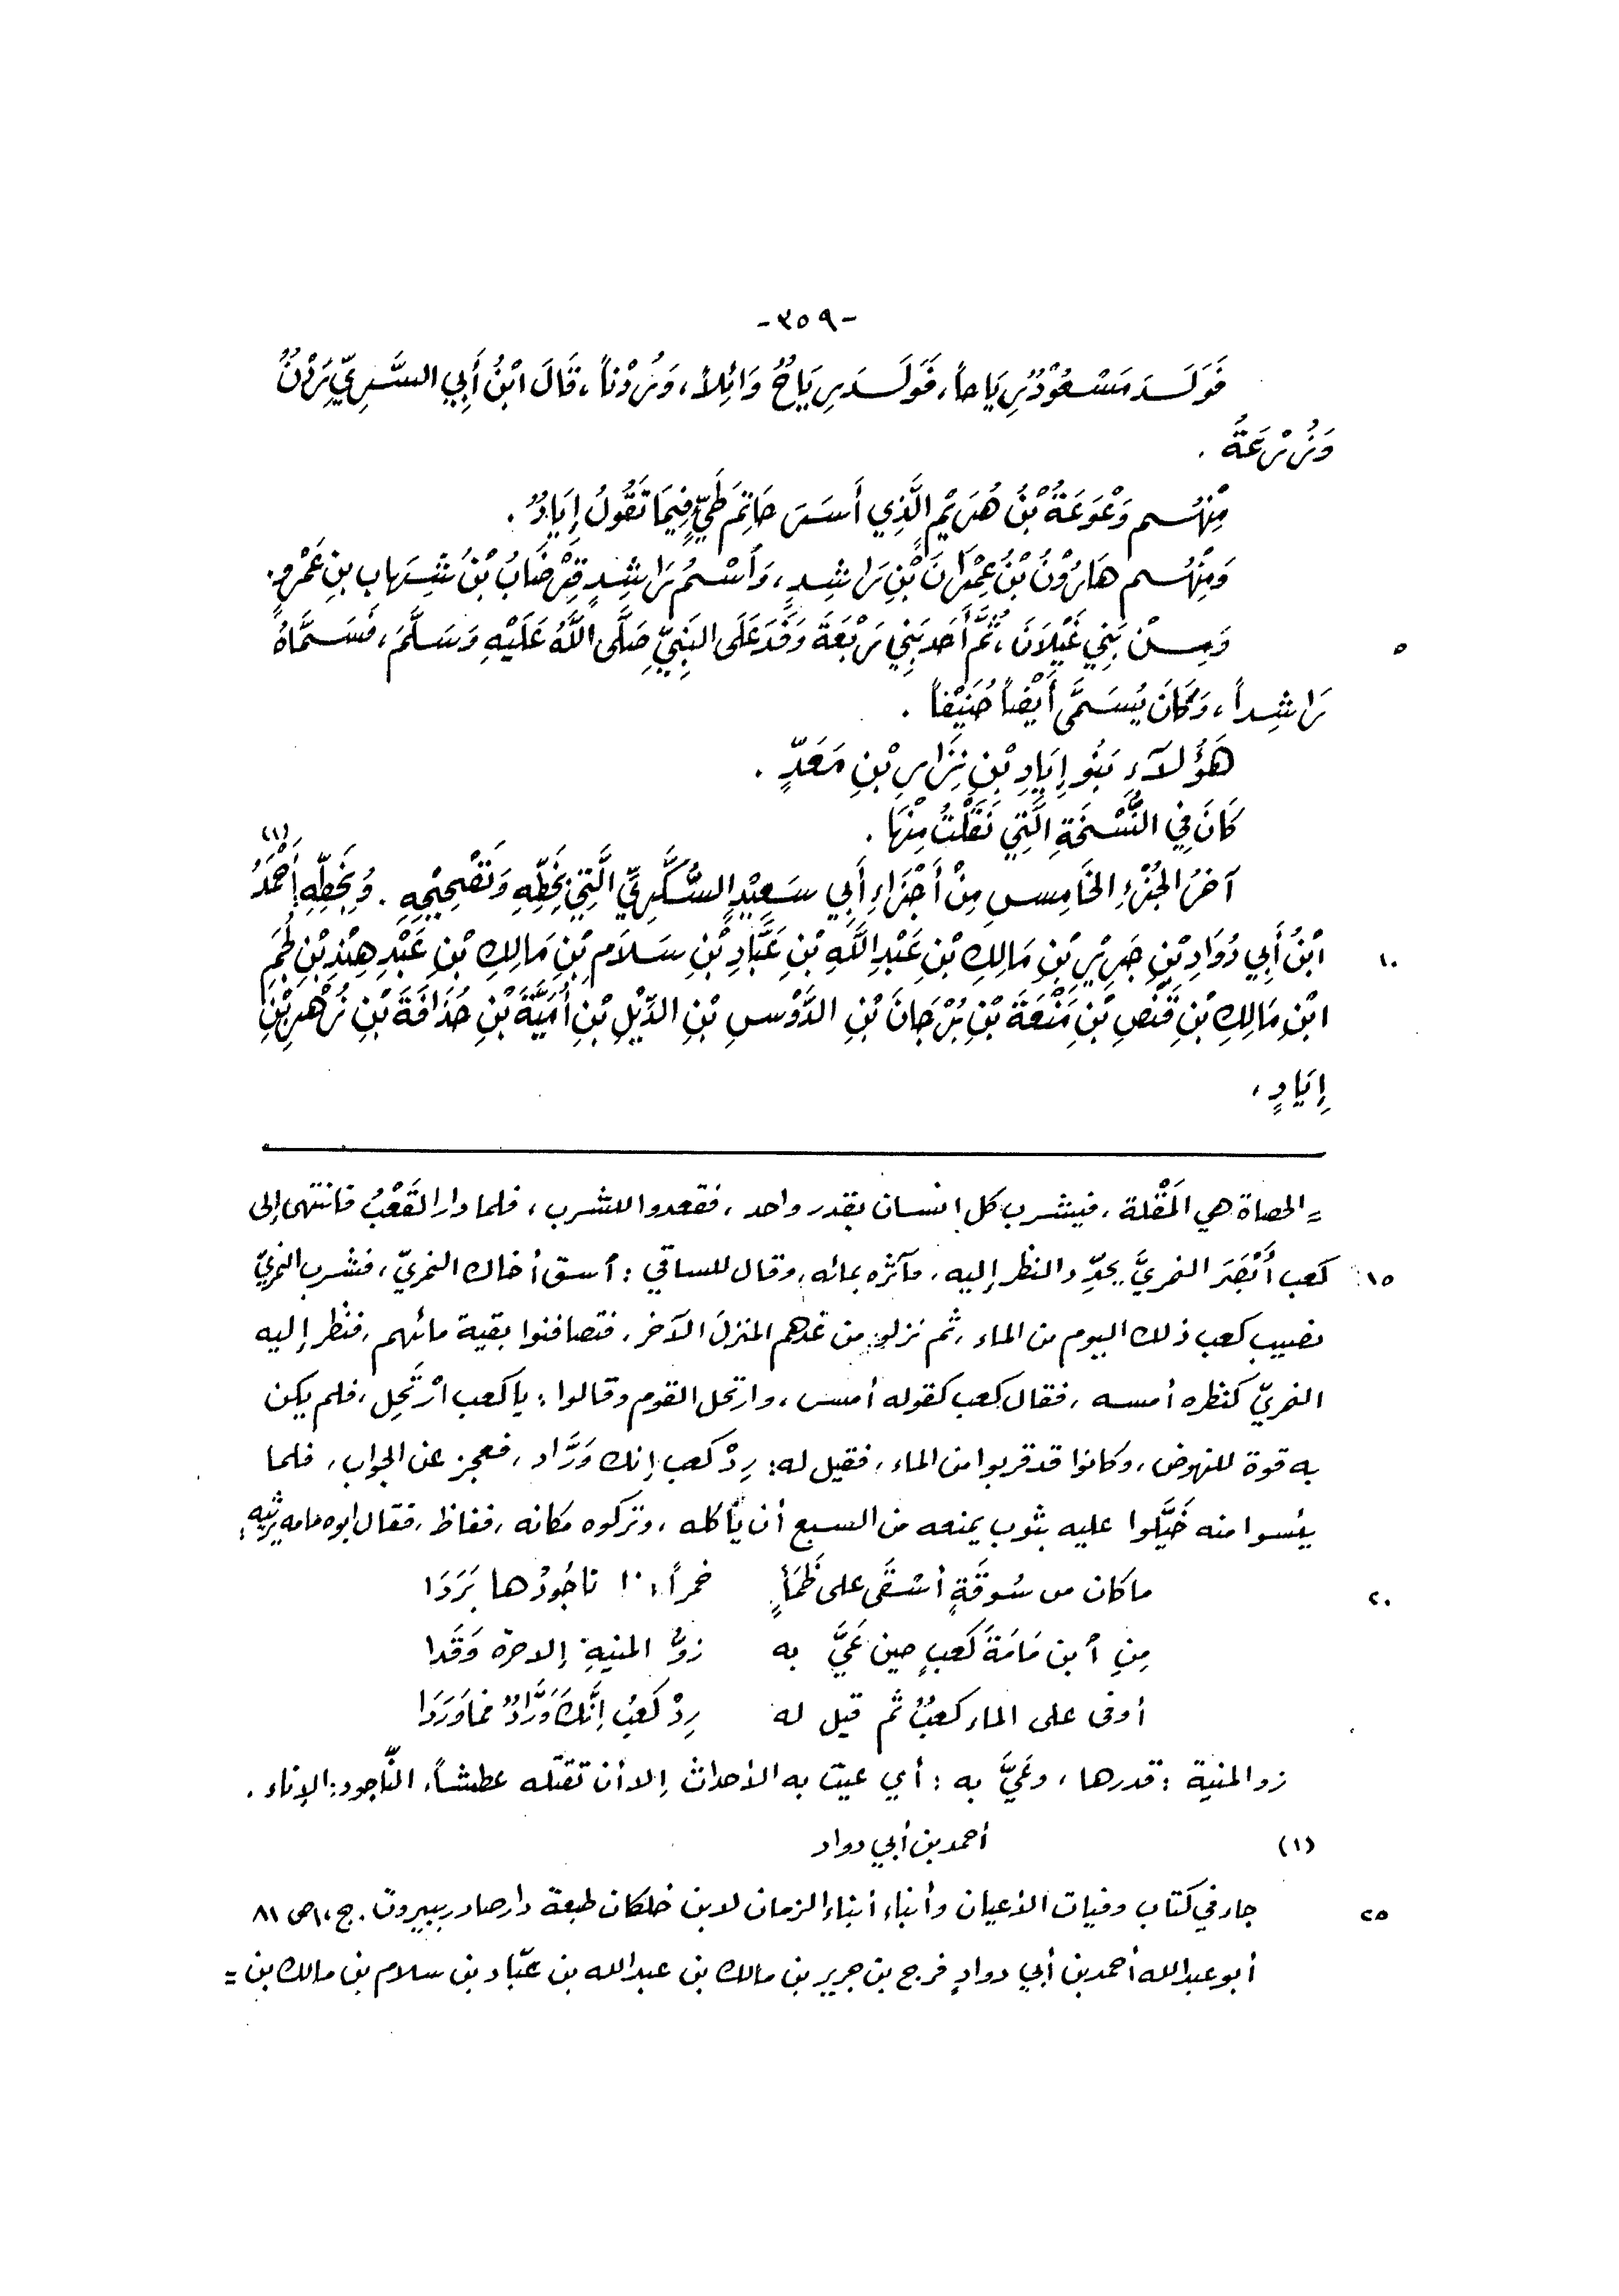 -٣٥٩-
فَوَلَدَ مَسْعُوْدٌ رِيَاحاً، فَوَلَدَ رِيَاحٌ وَائِلاً، وَزُدْناً، قَالَ ابْنُ أَبِي السَّرِيِّ زُدْنٌ
وَزُرْعَةُ .
مِنْهُم وَعْوَعَةُ بْنُ هُرَيْمٍ الَّذِي أَسَرَ حَاتِمَ طَيِّءٍ فِيمَا تَقُولُ إِيَادٌ .
وَمِنْهُم هَارُوْنُ بْنُ عِمْرَانَ بْنِ رَاشِدٍ، وَاسْمُ رَاشِدٍ قِرْضَابُ بْنُ شِهَابِ بنِ عَمْرٍو.
٥ وَمِنْ بَنِي غَيْلَانَ، ثُمَّ أَحَدِ بَنِي رَبْعَةَ وَفَدَ عَلَى النَبِيِّ صَلَّى اللَّهُ عَلَيْهِ وَسَلَّمَ، فَسَمَّاهُ
رَاشِداً، وَكَانَ يُسَمَّى أَيْضاً حُنَيْفاً .
هَؤُلَآءِ بَنُو إِيَادِ بْنِ نِزَارِ بْنِ مَعَدٍّ .
كَانَ فِي النُّسْخَةِ الَّتِي نَقَلْتُ مِنْهَا .
آخِرُ الجُزْءِ الخَامِسِ مِنْ أَجْزَاءِ أَبِي سَعِيْدٍ السُّكَّرِيِّ الَّتِي بِخَطِّهِ وَتَصْحِيْحِهِ . وَبِخَطِّهِ: أَحْمَدُ (١)
١٠ ابْنُ أَبِي دُوَادِ بْنِ جَرِيْرِ بْنِ مَالِكِ بْنِ عَبْدِ اللَّهِ بْنِ عَبَّادِ بْنِ سَلَامِ بْنِ مَالِكِ بْنِ عَبْدِ هِنْدِ بْنِ لُخَمِ
ابْنِ مَالِكِ بْنِ قَنَصِ بْنِ مَنْعَةَ بْنِ بُرْجَانَ بْنِ الدَّوْسِ بْنِ الدِّيْلِ بْنِ أُمَيَّةَ بْنِ حُذَافَةَ بْنِ زُهْرِ بْنِ
إِيَادٍ،
= الحصاة هي المَقْلة، فيشرب كل انسان بقدر واحد، فقعدوا للشرب، فلما دار القَعْبُ فانتهى إلى
١٥ كعب أَبْصَرَ النمريَّ يحدِّد النظر إليه، فآثره بمائه، وقال للساقي: أسق أخاك النمريّ، فشرب النمريّ
نصيب كعب ذلك اليوم من الماء، ثم نزلوا من غدهم المنزلَ الآخر، فتصافنوا بقية مائهم، فنظر إليه
النمريّ كنظره أمسه، فقال كعب كقوله أمس، وارتحل القوم وقالوا: يا كعب ارْتَحِل، فلم يكن
به قوة للنهوض، وكانوا قد قربوا من الماء، فقيل له: رِدْ كعب إنك وَرَّاد، فعجز عن الجواب، فلما
يئسوا منه خَيَّلوا عليه بثوب يمنعه من السبع أن يأكله، وتركوه مكانه، ففاظ، فقال ابوه مامه يرثيه:
٢٠ ما كان من سُوقَةٍ أسْقَى على ظَمَأٍ خمراً ناجُودُها بَرَدَا
مِنِ أبن مَامَةَ كَعبٍ حين عَيَّ به زوُّ المنيةِ إلا حرة وَقَدا
أوفى على الماء كعبٌ ثم قيل له رِدْ كَعبُ إنَّكَ وَرَّادٌ فما وَرَدَا
زو المنية: قدرها، وعَيَّ به: أي عيت به الأحداث إلا أن تقتله عطشاً، النَّاجود: الإناء .
(١) أحمد بن أبي دواد
٢٥ جاء في كتاب وفيات الأعيان وأنباء أبناء الزمان لابن خلكان طبعة دار صادر ببيروت. ج،١ ص ٨١
أبو عبد الله أحمد بن أبي دوادٍ فرج بن جرير بن مالك بن عبد الله بن عبّاد بن سلام بن مالك بن =